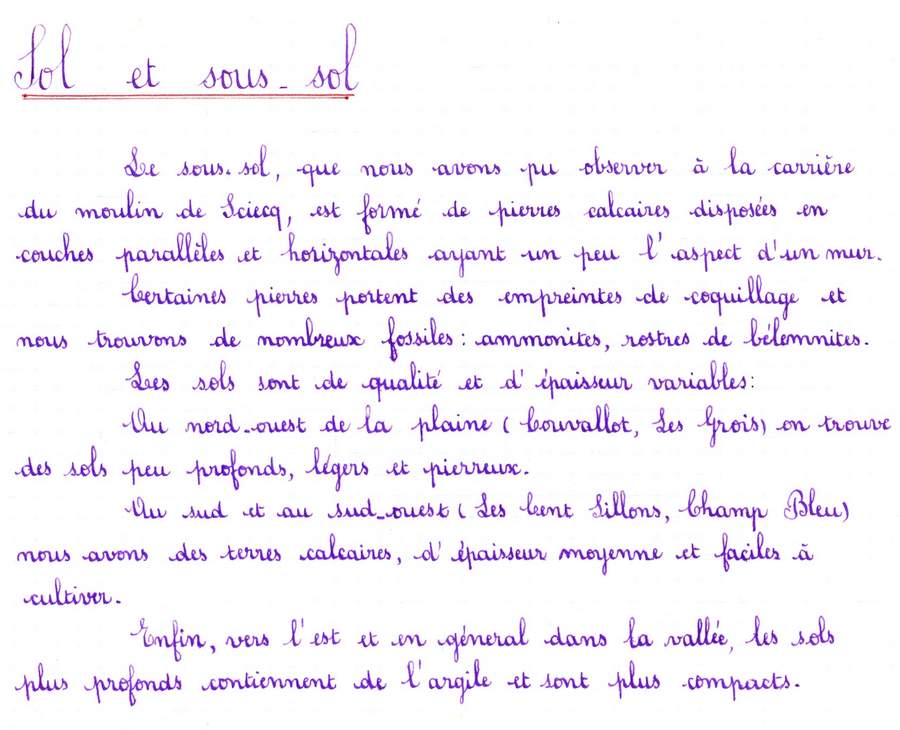 Sol et sous-sol
Le sous-sol, que nous avons pu observer à la carrière
du moulin de Sciecq, est formé de pierres calcaires disposées en
couches parallèles et horizontales ayant un peu l'aspect d'un mur.
Certaines pierres portent des empreintes de coquillage et
nous trouvons de nombreux fossiles : ammonites, rostres de bélemnites.
Les sols sont de qualité et d'épaisseur variables :
Au nord-ouest de la plaine (Couvallot, Les Grois) on trouve
des sols peu profonds, légers et pierreux.
Au sud et au sud-ouest (Les Cent Sillons, Champ Bleu)
nous avons des terres calcaires, d'épaisseur moyenne et faciles à
cultiver.
Enfin, vers l'est et en géneral dans la vallée, les sols
plus profonds contiennent de l'argile et sont plus compacts.